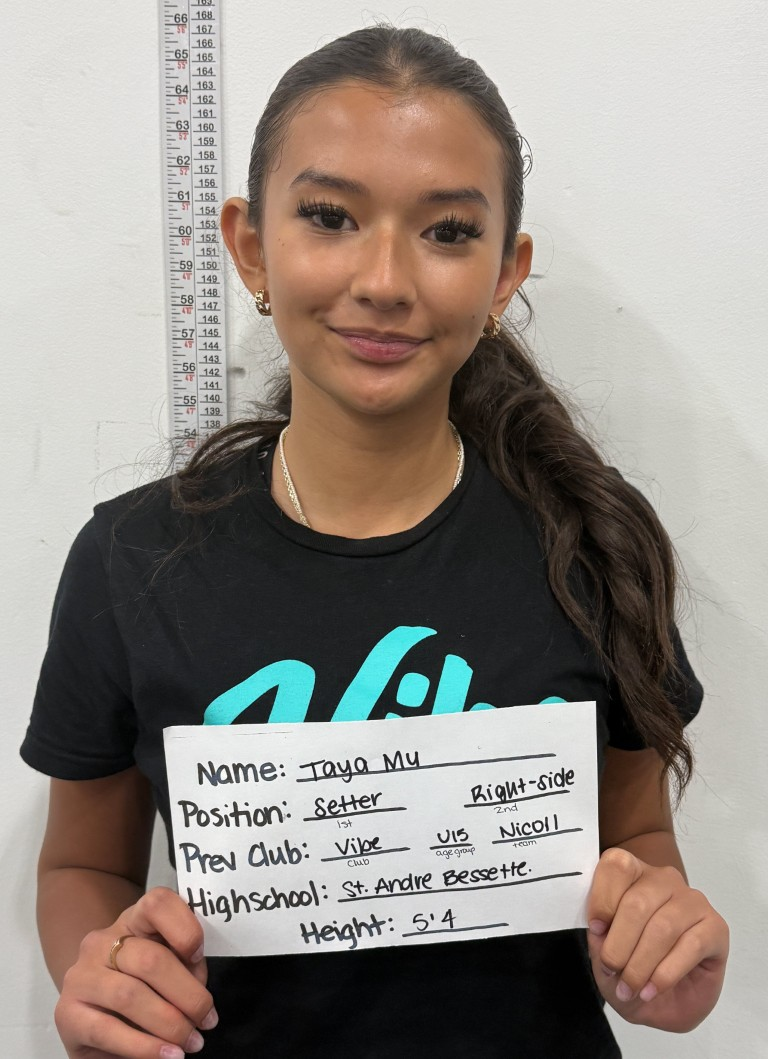 Vibe
Name: Taya Mu
Position: Setter Right-side
1st 2nd
Prev Club: Vibe U15 Nicoll
club age group team
Highschool: St. Andre Bessette.
Height: 5'4
66
65
64
63
62
61
60
59
58
57
56
55
54
168
167
166
165
164
163
162
161
160
159
158
157
156
155
154
153
152
151
150
149
148
147
146
145
144
143
142
141
140
139
138